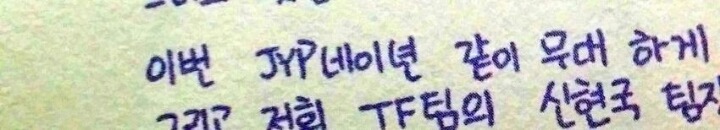 이번 JYP네이션 같이 무대 하게
그리고 저희 TF팀의 신현국 팀장